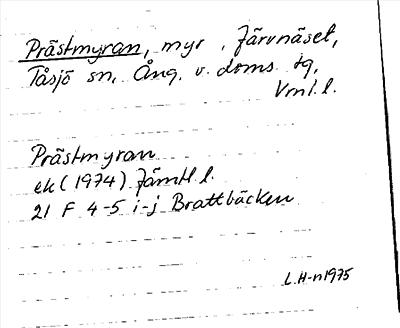 Prästmyran, myr, Järvnäset,
Tåsjö sn, Ång. v. doms. tg,
Vnl. l.
Prästmyran
ek (1974) Jämtl l.
21 F 4-5 i-j Brattbäcken
L.H-n 1975